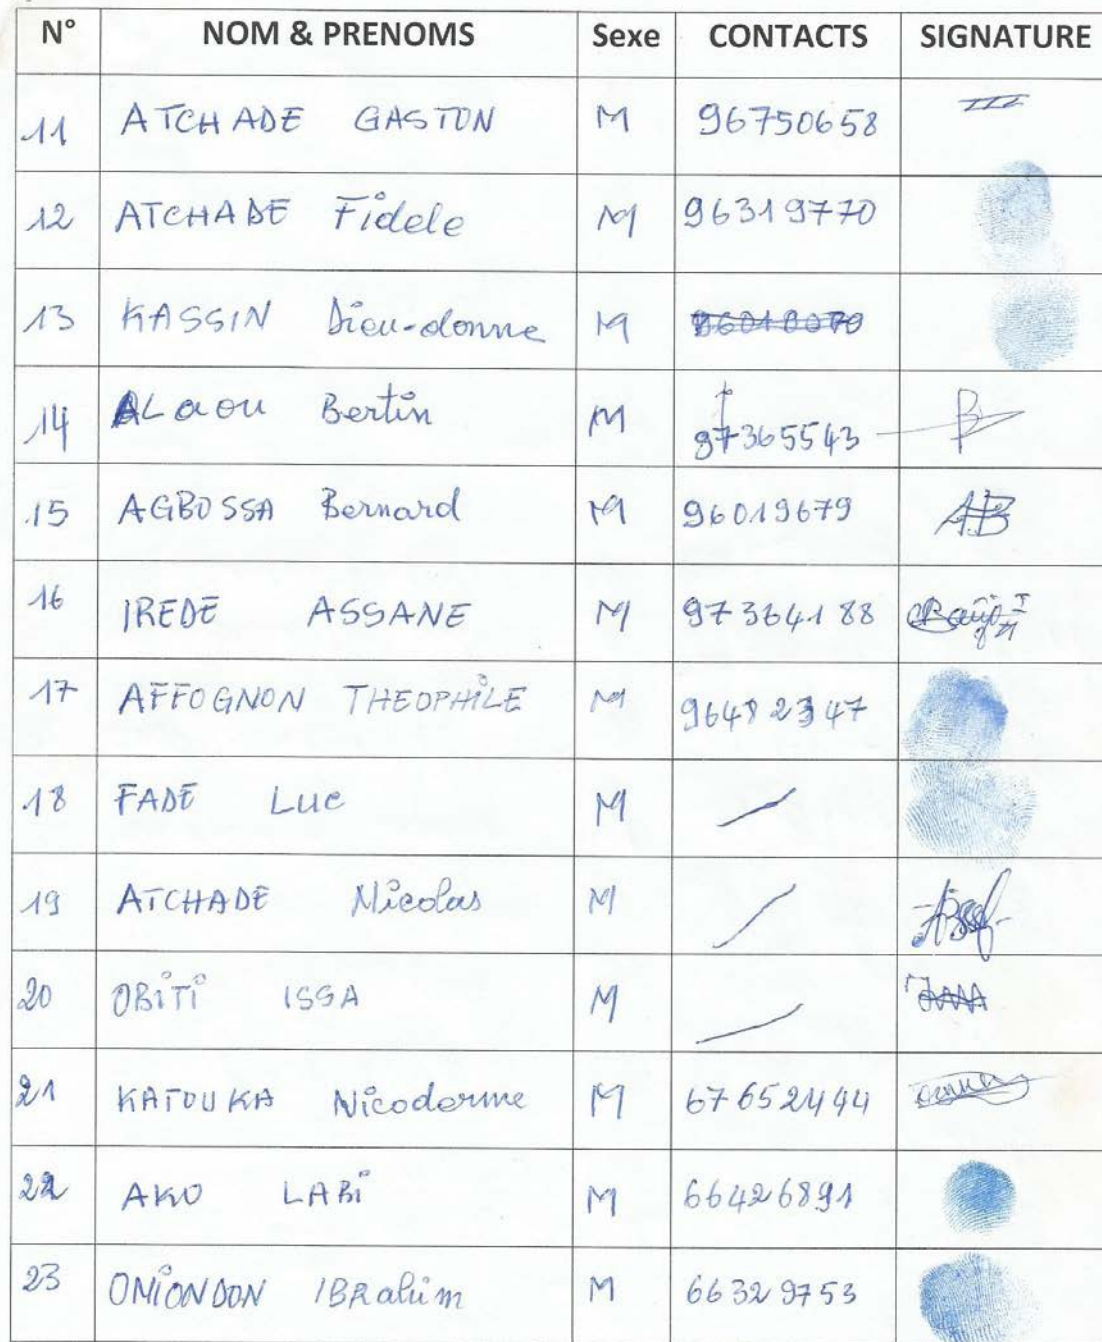 N° NOM & PRENOMS Sexe CONTACTS SIGNATURE
11 ATCHADE GASTON M 96750658
12 ATCHADE Fidele M 96319770
13 KASSIN Dieu-donne M 96018070
14 ALaou Bertin M 97365543
15 AGBOSSA Bernard M 96019679 AB
16 IREDE ASSANE M 97364188
17 AFFOGNON THEOPHILE M 96482347
18 FADE Luc M
19 ATCHADE Nicolas M
20 OBiTi ISSA M
21 KATOUKA Nicoderme M 67652444
22 AKO LABi M 66426891
23 ONIONDON IBRahim M 66329753